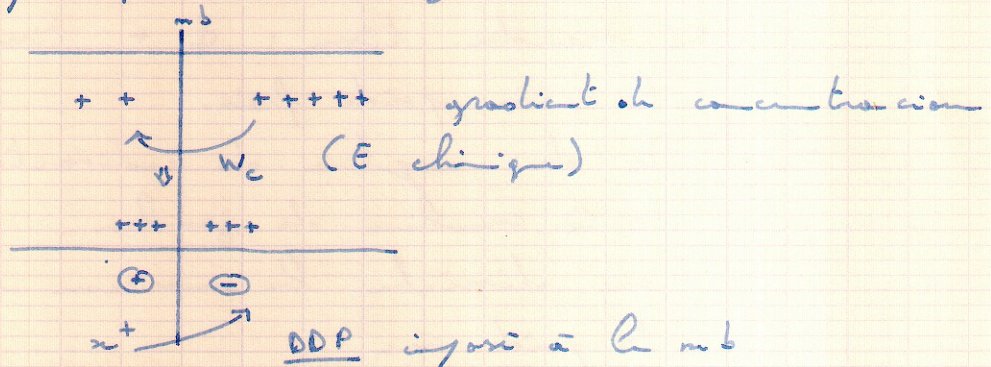 mb
+ + + + + + + gradient de concentracion
Wc (E chimique)
+++ +++
+ -
x+ DDP imposé à la mb